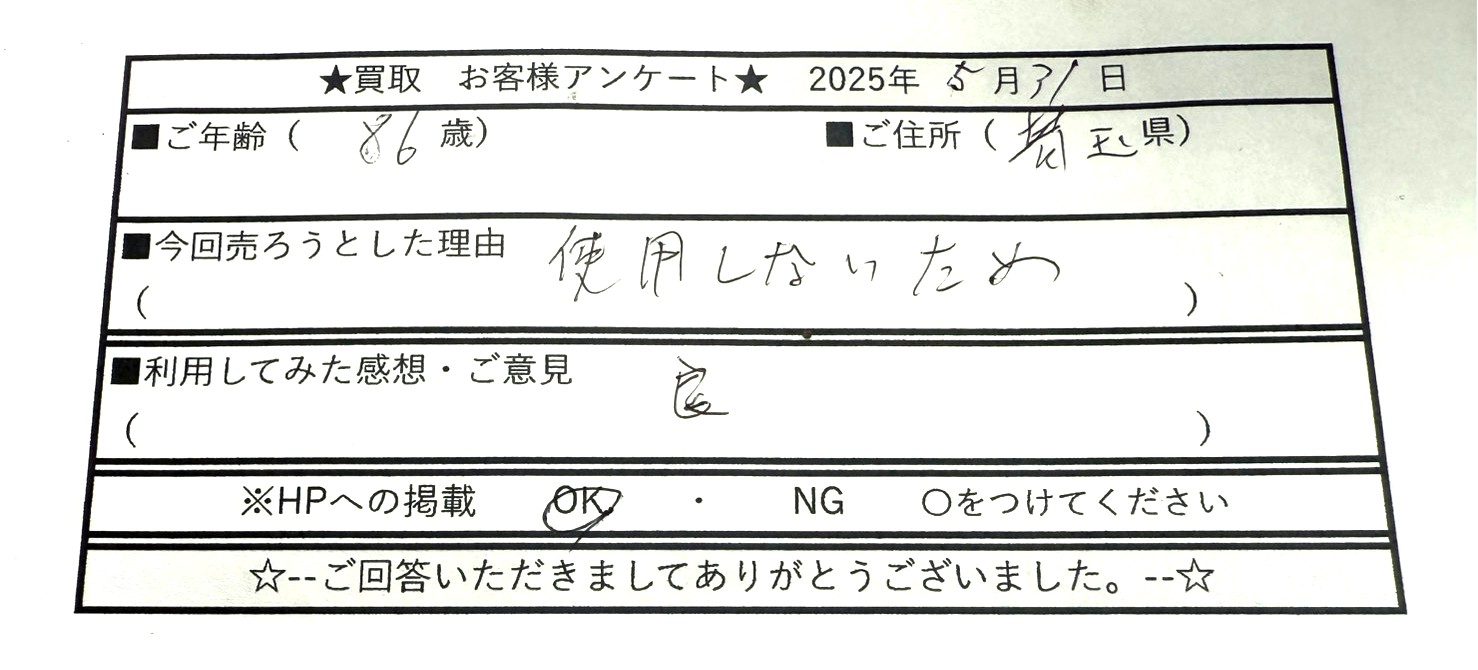 ★買取　お客様アンケート★　2025年 5月31日
■ご年齢（ 86 歳）　■ご住所（ 埼玉県）
■今回売ろうとした理由　使用しないため
（　）
■利用してみた感想・ご意見　良
（　）
※HPへの掲載　OK　・　NG　〇をつけてください
☆--ご回答いただきましてありがとうございました。--☆